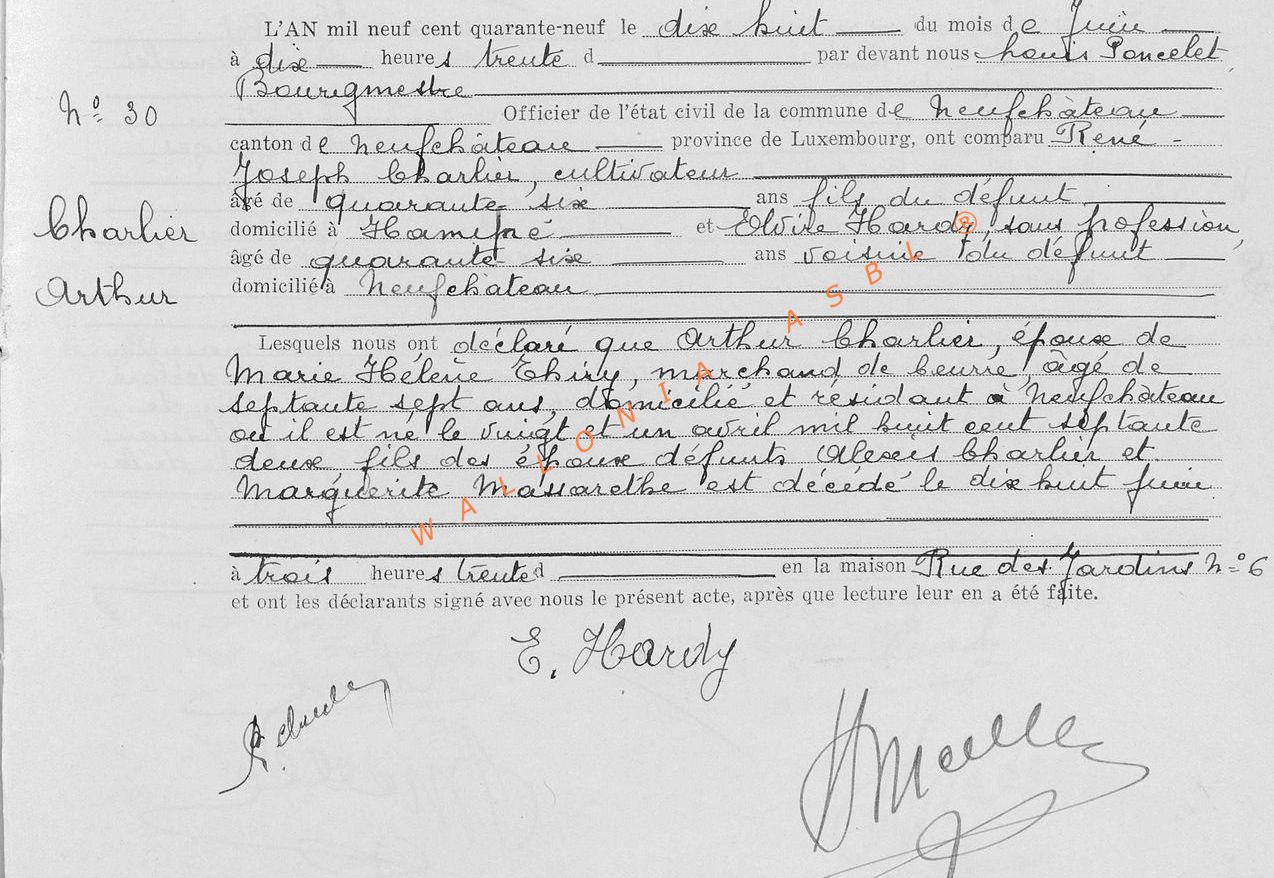 L'AN mil neuf cent quarante-neuf le dix huit du mois de Juin
à dix heures trente d par devant nous Louis Poncelet,
Bourgmestre
N° 30
Officier de l'état civil de la commune de Neufchâteau
canton de Neufchâteau province de Luxembourg, ont comparu René -
Joseph Charlier, cultivateur
âgé de quarante six ans fils du défunt
Charlier
domicilié à Hamipré et Elvire Hardy, sans profession,
âgé de quarante six ans voisine du défunt
Arthur
domicilié à Neufchâteau
Lesquels nous ont déclaré que Arthur Charlier, époux de
Marie Hélène Thiry, marchand de beurre, âgé de
septante sept ans, domicilié et résidant à Neufchâteau
où il est né le vingt et un avril mil huit cent septante
deux, fils des époux défunts Alexis Charlier et
Marguerite Massarethe est décédé le dix huit juin
WALLONIA ASBL ®
à trois heures trente d en la maison Rue des Jardins N° 6
et ont les déclarants signé avec nous le présent acte, après que lecture leur en a été faite.
E. Hardy